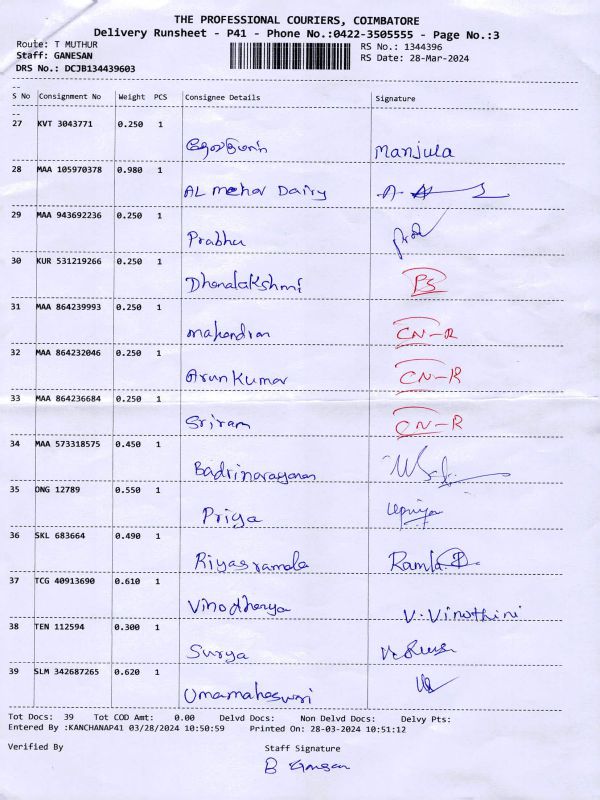 THE PROFESSIONAL COURIERS, COIMBATORE
Delivery Runsheet - P41 - Phone No.:0422-3505555 - Page No.:3
Route: T MUTHUR RS No.: 1344396
Staff: GANESAN RS Date: 28-Mar-2024
DRS No.: DCJB134439603
S No Consignment No Weight PCS Consignee Details Signature
27 KVT 3043771 0.250 1
Manjula
28 MAA 105970378 0.980 1
AL mehar Dairy
29 MAA 943692236 0.250 1
Prabhu
30 KUR 531219266 0.250 1
Dhanalakshmi PS
31 MAA 864239993 0.250 1
mahendran CN-R
32 MAA 864232046 0.250 1
Arun Kumar CN-R
33 MAA 864236684 0.250 1
Sriram CN-R
34 MAA 573318575 0.450 1
Badrinarayanan
35 DNG 12789 0.550 1
Priya
36 SKL 683664 0.490 1
Riyasramala Ramla
37 TCG 40913690 0.610 1
V. Vinothini
38 TEN 112594 0.300 1
Surya
39 SLM 342687265 0.620 1
Umamaheswari
Tot Docs: 39 Tot COD Amt: 0.00 Delvd Docs: Non Delvd Docs: Delvy Pts:
Entered By :KANCHANAP41 03/28/2024 10:50:59 Printed On: 28-03-2024 10:51:12
Verified By Staff Signature